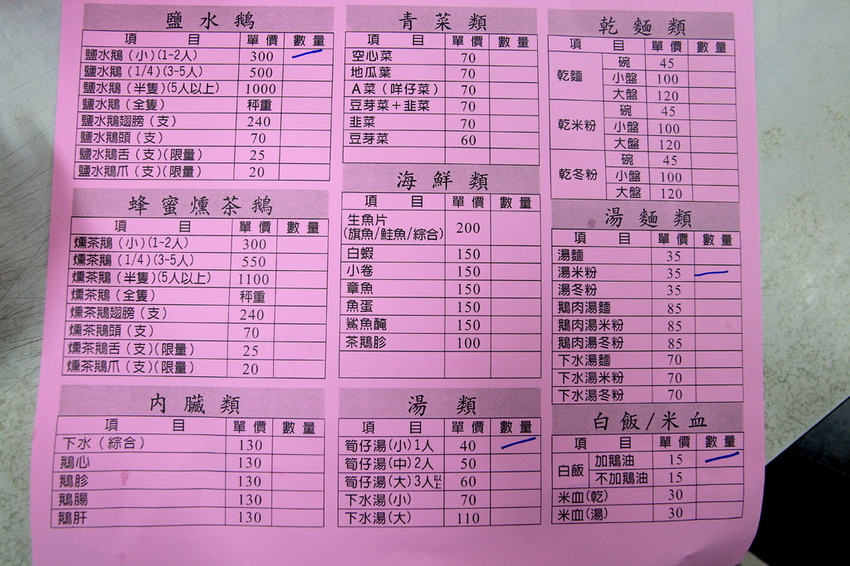 鹽水鵝
項 目 單價 數量
鹽水鵝(小)(1-2人) 300
鹽水鵝(1/4)(3-5人) 500
鹽水鵝(半隻)(5人以上) 1000
鹽水鵝(全隻) 秤重
鹽水鵝翅膀(支) 240
鹽水鵝頭(支) 70
鹽水鵝舌(支)(限量) 25
鹽水鵝爪(支)(限量) 20
蜂蜜燻茶鵝
項 目 單價 數量
燻茶鵝(小)(1-2人) 300
燻茶鵝(1/4)(3-5人) 550
燻茶鵝(半隻)(5人以上) 1100
燻茶鵝(全隻) 秤重
燻茶鵝翅膀(支) 240
燻茶鵝頭(支) 70
燻茶鵝舌(支)(限量) 25
燻茶鵝爪(支)(限量) 20
內臟類
項 目 單價 數量
下水(綜合) 130
鵝心 130
鵝胗 130
鵝腸 130
鵝肝 130
青菜類
項 目 單價 數量
空心菜 70
地瓜葉 70
A菜(咩仔菜) 70
豆芽菜+韭菜 70
韭菜 70
豆芽菜 60
海鮮類
項 目 單價 數量
生魚片
(旗魚/鮭魚/綜合) 200
白蝦 150
小卷 150
章魚 150
魚蛋 150
鯊魚醃 150
茶鵝胗 100
湯類
項 目 單價 數量
筍仔湯(小)1人 40
筍仔湯(中)2人 50
筍仔湯(大)3人以上 60
下水湯(小) 70
下水湯(大) 110
乾麵類
項 目 單價 數量
乾麵 碗 45
小盤 100
大盤 120
乾米粉 碗 45
小盤 100
大盤 120
乾冬粉 碗 45
小盤 100
大盤 120
湯麵類
項 目 單價 數量
湯麵 35
湯米粉 35
湯冬粉 35
鵝肉湯麵 85
鵝肉湯米粉 85
鵝肉湯冬粉 85
下水湯麵 70
下水湯米粉 70
下水湯冬粉 70
白飯/米血
項 目 單價 數量
白飯 加鵝油 15
不加鵝油 15
米血(乾) 30
米血(湯) 30